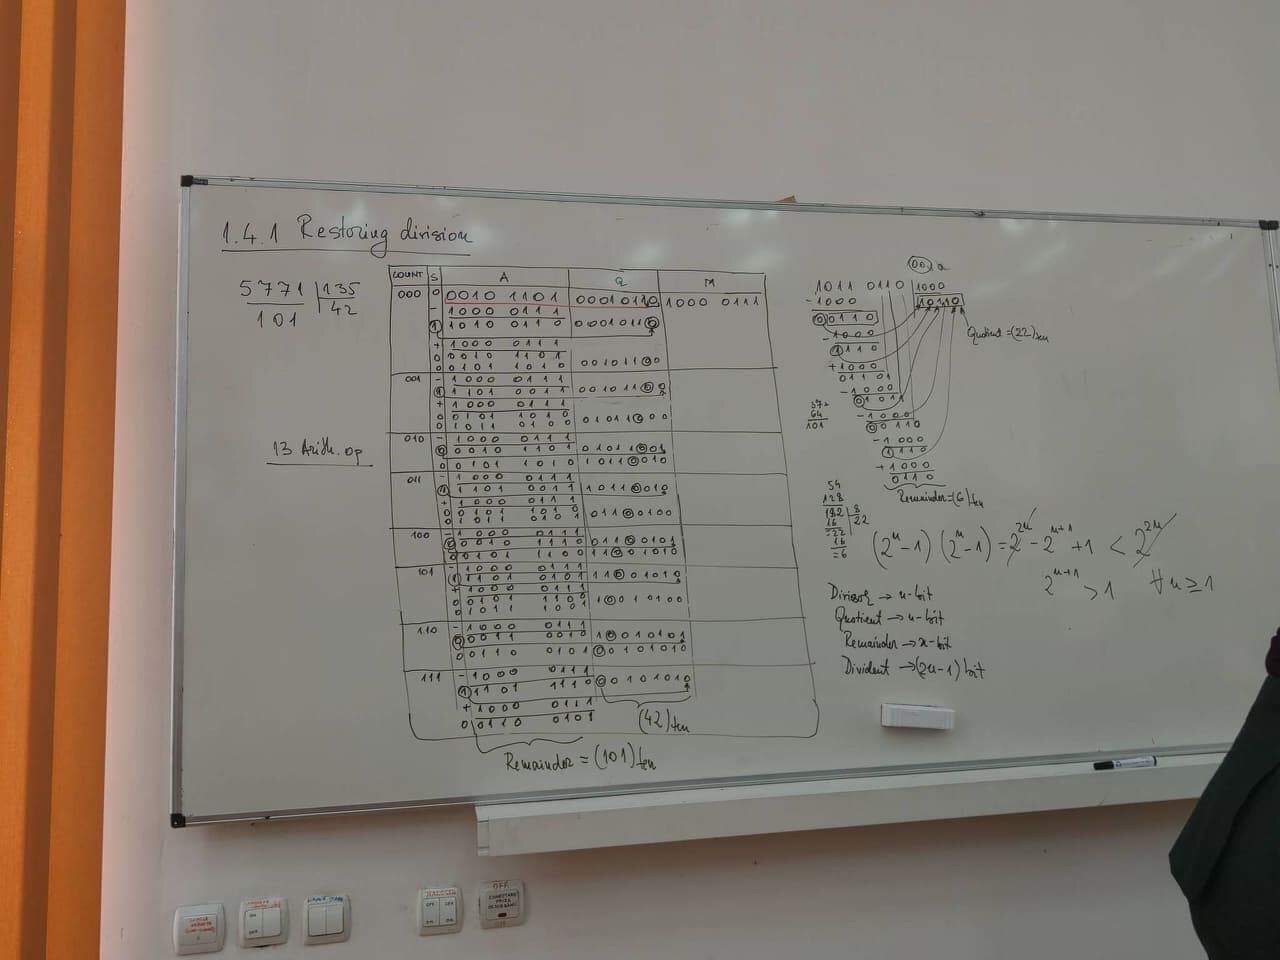 1.4.1 Restoring division
5771 | 135
101 42
13 Arith. op
COUNT S A Q M
000 0 0010 1101 00010110 1000 0111
- 1000 0111
1 1010 0110 00010110
+ 1000 0111
0 0010 1101
0 0101 1010 00101100
001 - 1000 0111
1 1101 0011 00101100
+ 1000 0111
0 0101 1010
0 1011 0100 01011000
010 - 1000 0111
0 0010 1101 01011001
0 0101 1010 10110010
011 - 1000 0111
1 1101 0011 10110010
+ 1000 0111
0 0101 1010
0 1011 0101 01100100
100 - 1000 0111
0 0010 1110 01100101
0 0101 1100 11001010
101 - 1000 0111
1 1101 0101 11001010
+ 1000 0111
0 0101 1100
0 1011 1001 10010100
110 - 1000 0111
0 0011 0010 10010101
0 0110 0101 00101010
111 - 1000 0111
1 1101 1110 00101010
+ 1000 0111
0 0110 0101
(42)ten
Remainder = (101)ten
1011 0110 1000
-1000 10110
0 0110
-1000
1 110
+1000
01101
-1000
0 1011
-1000
0 0110
-1000
1 110
+1000
0110
Quotient = (22)ten
Remainder = (6)ten
64
101
54
128
182 | 8
16 22
=22
16
=6
(2ⁿ-1)(2ⁿ-1) = 2²ⁿ - 2ⁿ⁺¹ + 1 < 2²ⁿ
2ⁿ⁺¹ > 1 ∀n ≥ 1
Divisor → n-bit
Quotient → n-bit
Remainder → n-bit
Divident → (2n-1) bit
OFF